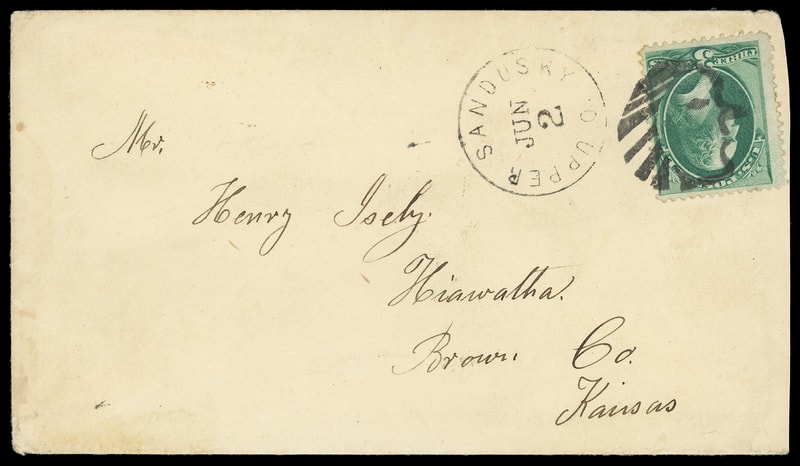 UPPER SANDUSKY O
JUN
2
Mr.
Henry Isely.
Hiawatha.
Brown. Co.
Kansas